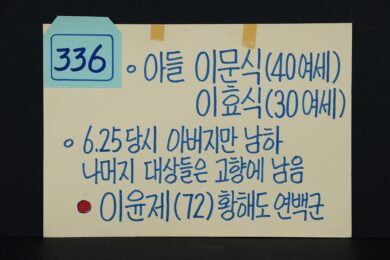 336
◦ 아들 이문식(40여세)
이효식(30여세)
◦ 6.25 당시 아버지만 남하
나머지 대상들은 고향에 남음
● 이윤제(72) 황해도 연백군